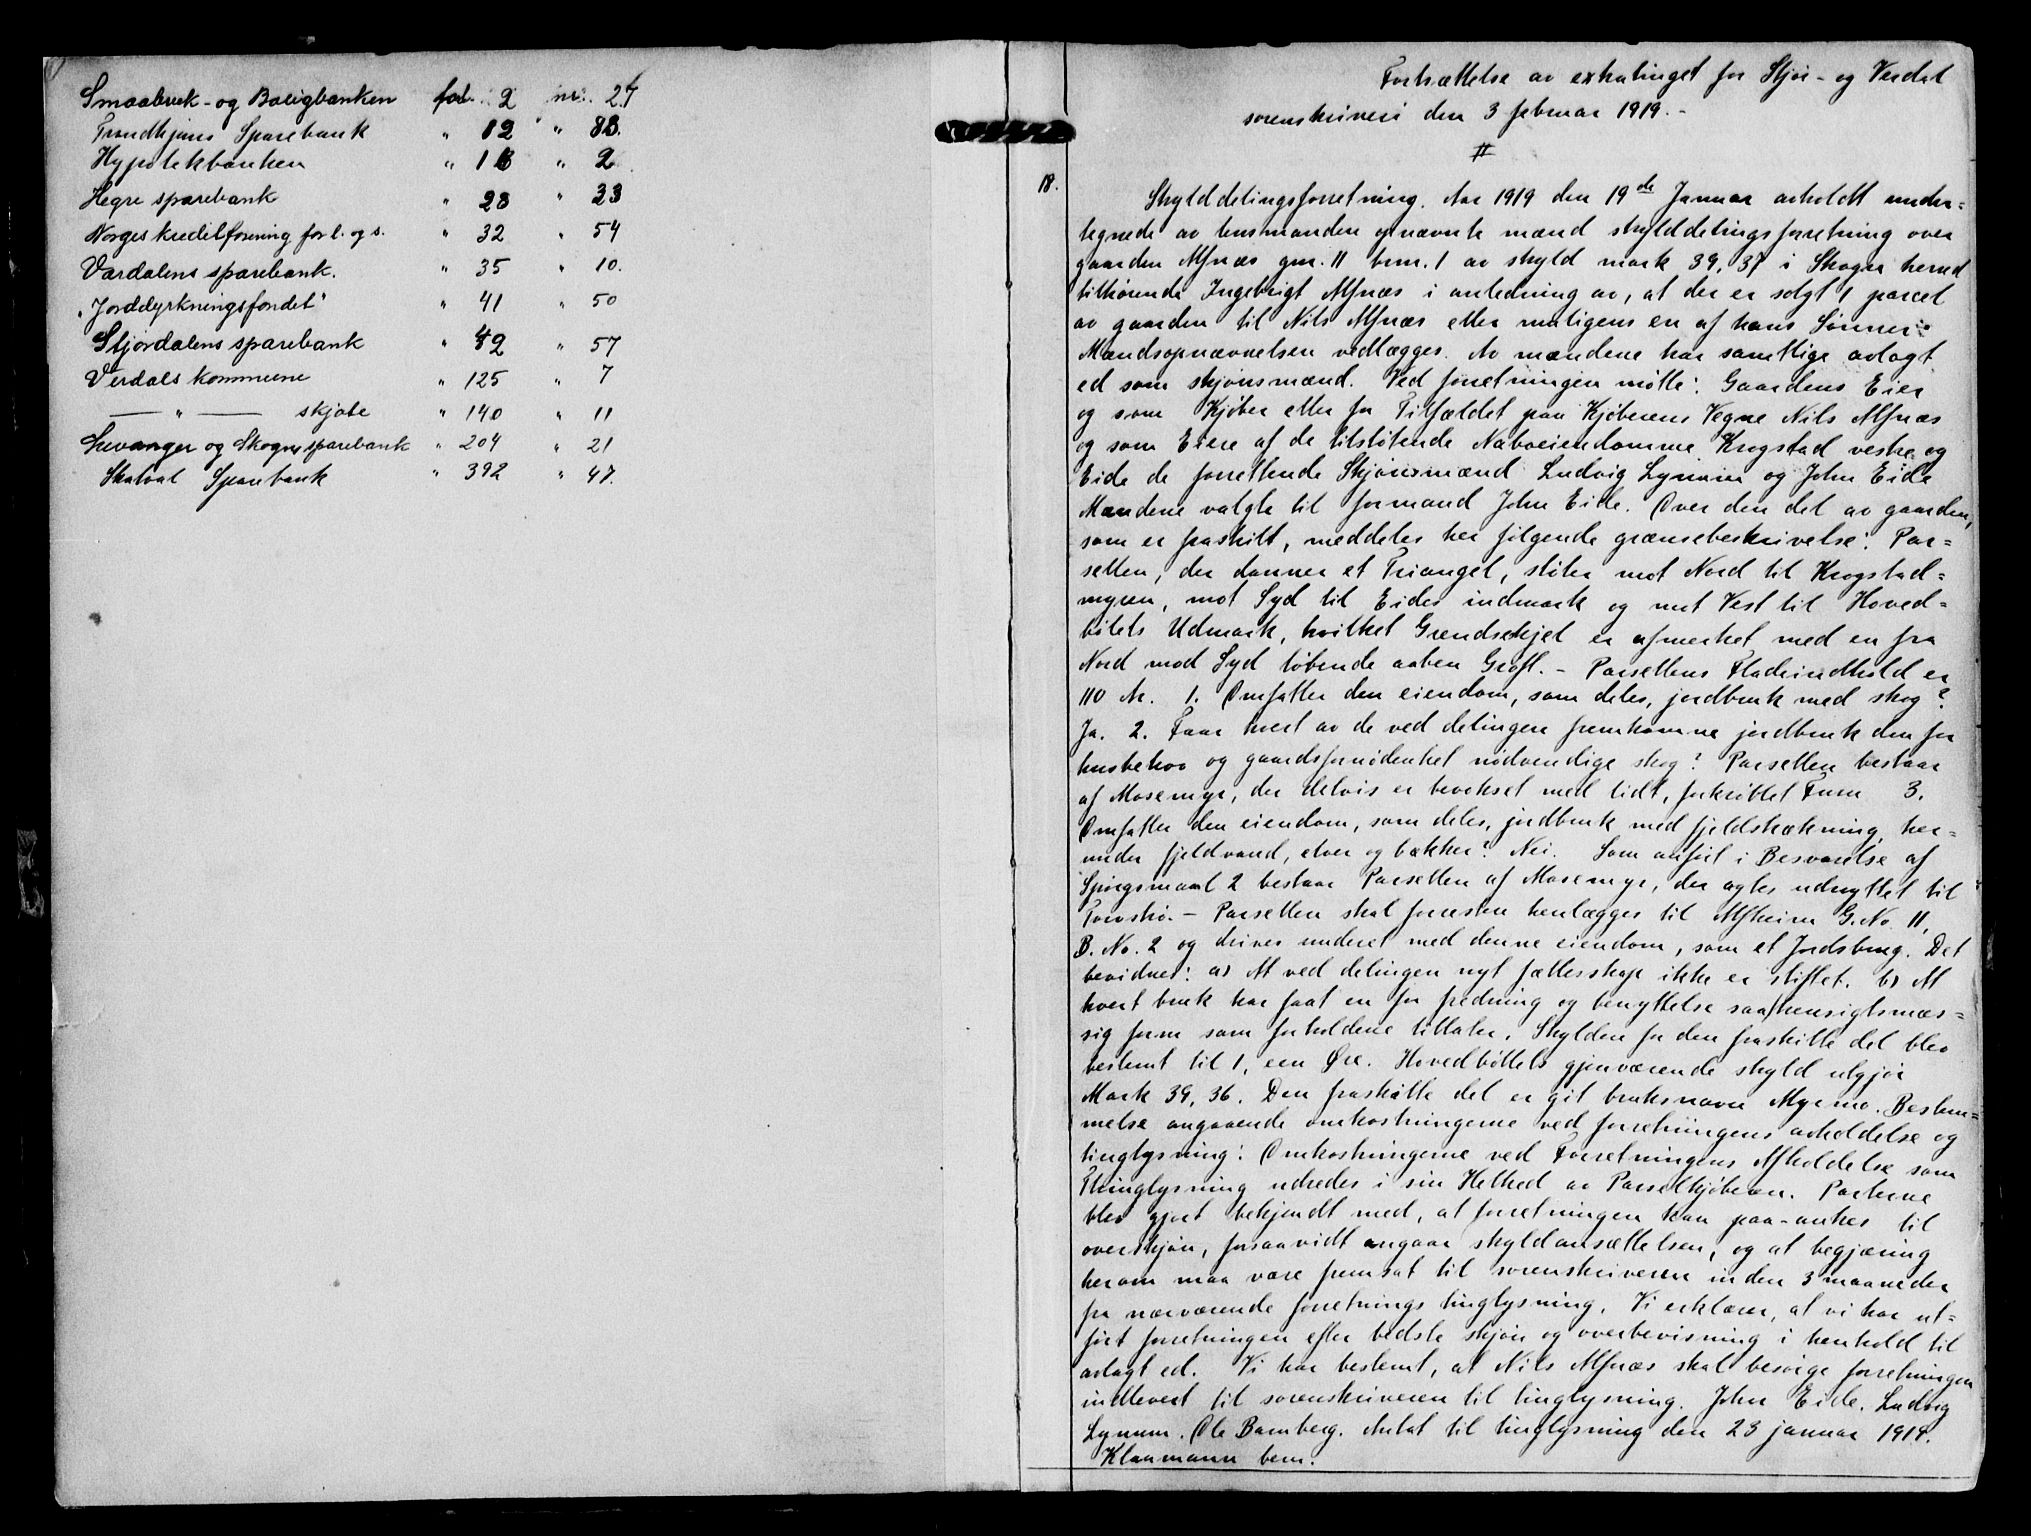 Smaabruk- og Boligbanken fol. 2 nr. 27
Trondhjems Sparebank " 12 " 83.
Hypotekbanken " 18 " 2
Hegre sparebank " 28 " 33
Norges kreditforening for l. og s. " 32 " 54
Værdalens sparebank. " 35 " 10.
"Jorddyrkningsfondet" " 41 " 50
Stjørdalens sparebank " 42 " 57
Verdals kommune " 125 " 7
— " — skjøte " 140 " 11
Levanger og Skogns sparebank " 204 " 21
Skatval Sparebank " 392 " 47.
Fortsættelse av extratinget for Stjør- og Verdal
sorenskriveri den 3 februar 1919.-
18.
Skylddelingsforretning. Aar 1919 den 19de Januar avholdt under=
tegnede av lensmanden opnævnte mænd skylddelingsforretning over
gaarden Alfnæs gnr. 11 brnr. 1 av skyld mark 39,37 i Skogn herred
tilhørende Ingebrigt Alfnæs i anledning av, at der er solgt 1 parcel
av gaarden til Nils Alfnæs eller muligens en af hans Sønner.
Mændsopnævnelsen vedlægges. Av mændene har samtlige avlagt
ed som skjønsmænd. Ved forretningen møtte: Gaardens Eier
og som Kjøber eller for Tilfældet paa Kjøberens Vegne Nils Alfnæs
og som Eiere af de tilstøtende Naboeiendomme Krogstad vestre og
Eide de forrettende Skjønsmænd Ludvig Lynum og John Eide
Mændene valgte til formand John Eide. Over den del av gaarden,
som er fraskilt, meddeles her følgende grænsebeskrivelse: Par=
sellen, der danner et Triangel, støter mot Nord til Krogstad=
myren, mot Syd til Eides indmark og mot Vest til Hoved=
bølets Udmark, hvilket Grændseskjel er afmerket med en fra
Nord mod Syd løbende aaben Grøft. - Parsellens Fladeindhold er
110 Ar. 1. Omfatter den eiendom, som deles, jordbruk med skog?
Ja. 2. Faar hvert av de ved delingen fremkomne jordbruk den for
husbehov og gaardsfornødenhet nødvendige skog? Parsellen bestaar
af Mosemyr, der delvis er bevokset med lidt, forkrøblet Furu 3.
Omfatter den eiendom, som deles, jordbruk med fjeldstrækning, her=
under fjeldvand, elver og bækker? Nei. Som anført i Besvarelse af
Spørgsmaal 2 bestaar Parsellen af Mosemyr, der agtes udnyttet til
Torvstrø. - Parsellen skal forresten henlægges til Alfheim G.No. 11,
B.No. 2 og drives underet med denne eiendom, som et Jordsbrug. Det
bevidnes: a) At ved delingen nyt fællesskap ikke er stiftet. b) At
hvert bruk har faat en for fredning og benyttelse saa hensigtsmæs=
sig form som forholdene tillater. Skylden for den fraskilte del blev
bestemt til 1, een Øre. Hovedbøllets gjenværende skyld utgjør
Mark 39,36. Den fraskilte del er git bruksnavn Myrmo. Bestem=
melse angaaende omkostningerne ved forretningens avholdelse og
tinglysning: Omkostningerne ved Forretningens Afholdelse som
Thinglysning udredes i sin Helhed av Parselkjøberen. Parterne
blev gjort bekjendt med, at forretningen kan paa-ankes til
overskjøn, forsaavidt angaar skyldansættelsen, og at begjæring
herom maa være fremsat til sorenskriveren inden 3 maaneder
fra nærværende forretnings tinglysning. Vi erklærer, at vi har ut=
ført forretningen efter bedste skjøn og overbevisning i henhold til
avlagt ed. Vi har bestemt, at Nils Alfnæs skal besørge forretningen
indlevert til sorenskriveren til tinglysning. John Eide. Ludvig
Lynum. Ole Bamberg. Antat til tinglysning den 23 januar 1919.
Klaumann bem.